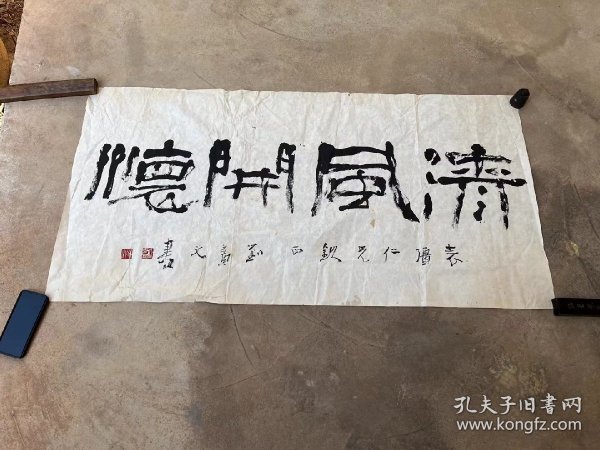 清風開懷
袁 仁兄 正 劉 文書
孔夫子旧书网
www.kongfz.com